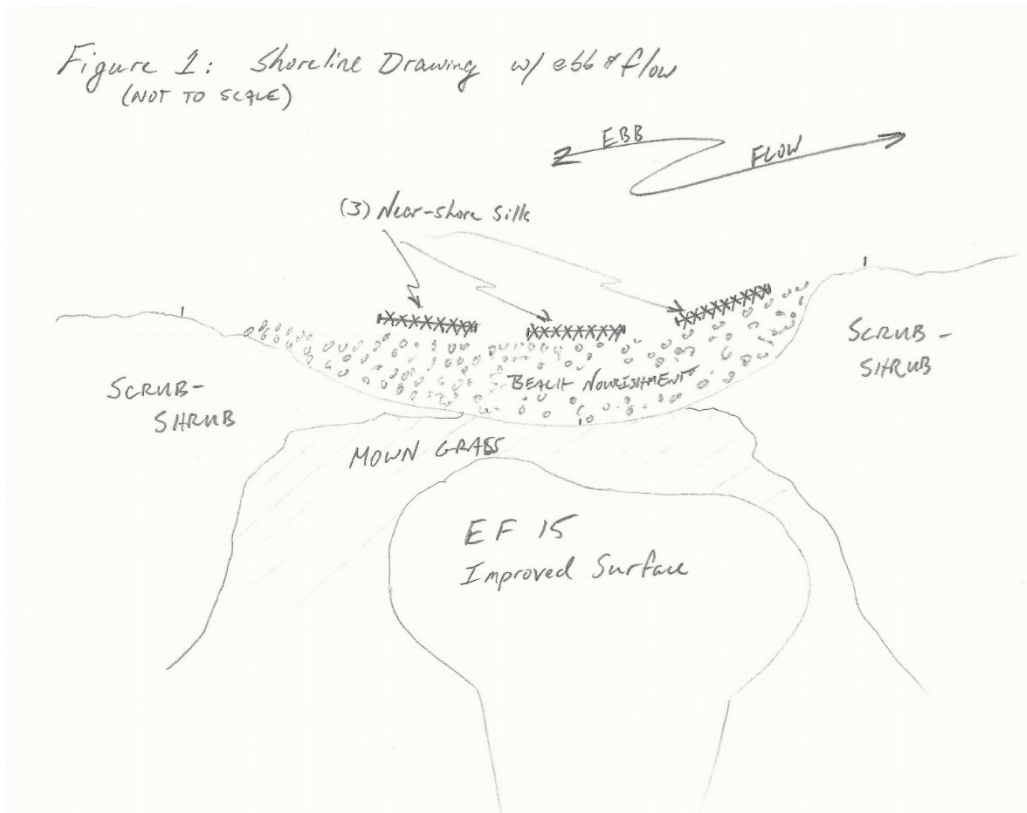 Figure 1: Shoreline Drawing w/ ebb & flow
(NOT TO SCALE)
EBB
FLOW
(3) Near-shore Sills
SCRUB-
SHRUB
BEACH NOURISHMENT
SCRUB -
SHRUB
MOWN GRASS
EF 15
Improved Surface